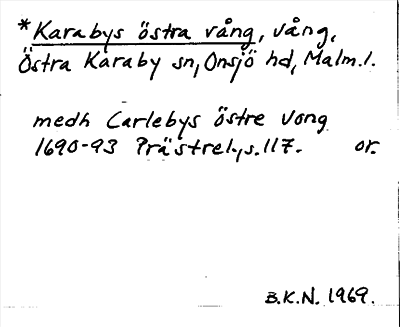 *Karabys östra vång, vång,
Östra Karaby sn, Onsjö hd, Malm.l.
medh Carlebys östre vong
1690-93 Prästrel.s.117. or.
B.K.N. 1969.